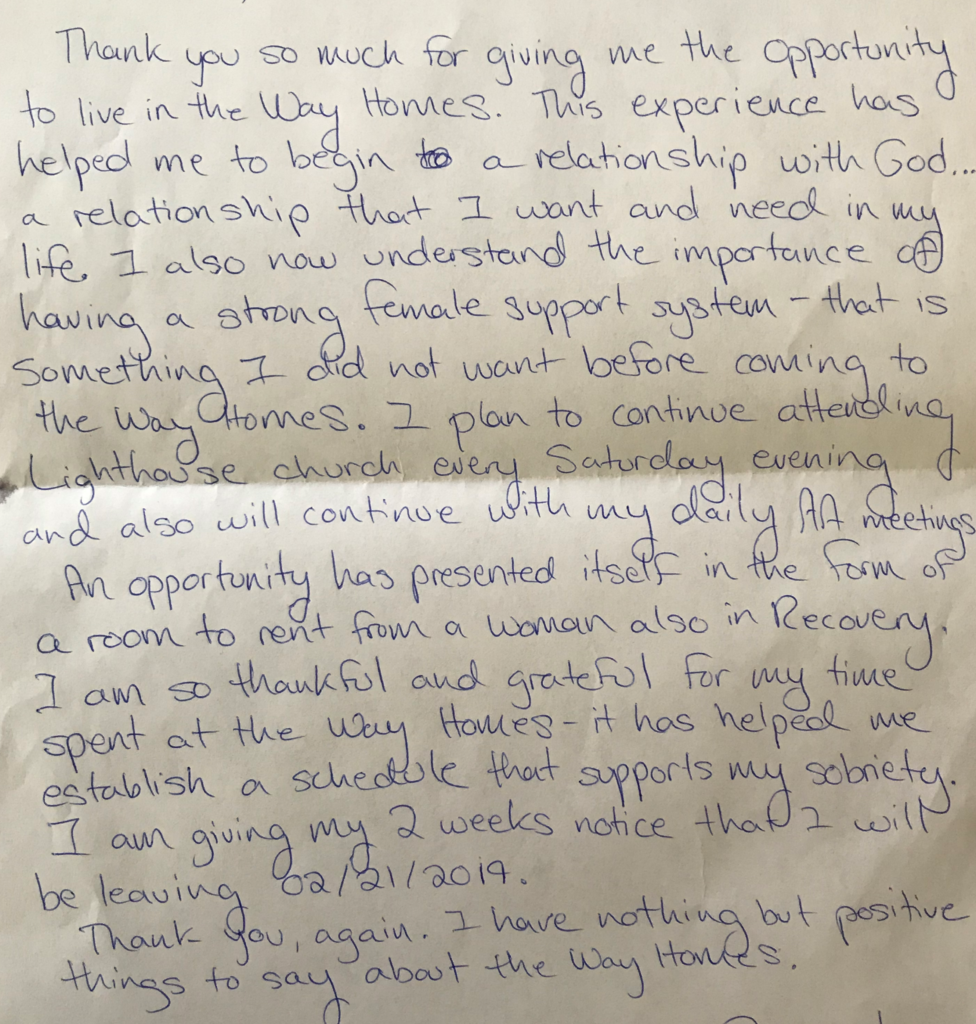 Thank you so much for giving me the opportunity
to live in the Way Homes. This experience has
helped me to begin a relationship with God...
a relationship that I want and need in my
life. I also now understand the importance of
having a strong female support system - that is
something I did not want before coming to
the Way Homes. I plan to continue attending
Lighthouse church every Saturday evening
and also will continue with my daily AA meetings
An opportunity has presented itself in the form of
a room to rent from a woman also in Recovery.
I am so thankful and grateful for my time
spent at the Way Homes - it has helped me
establish a schedule that supports my sobriety.
I am giving my 2 weeks notice that I will
be leaving 02/21/2019.
Thank you, again. I have nothing but positive
things to say about the Way Homes.